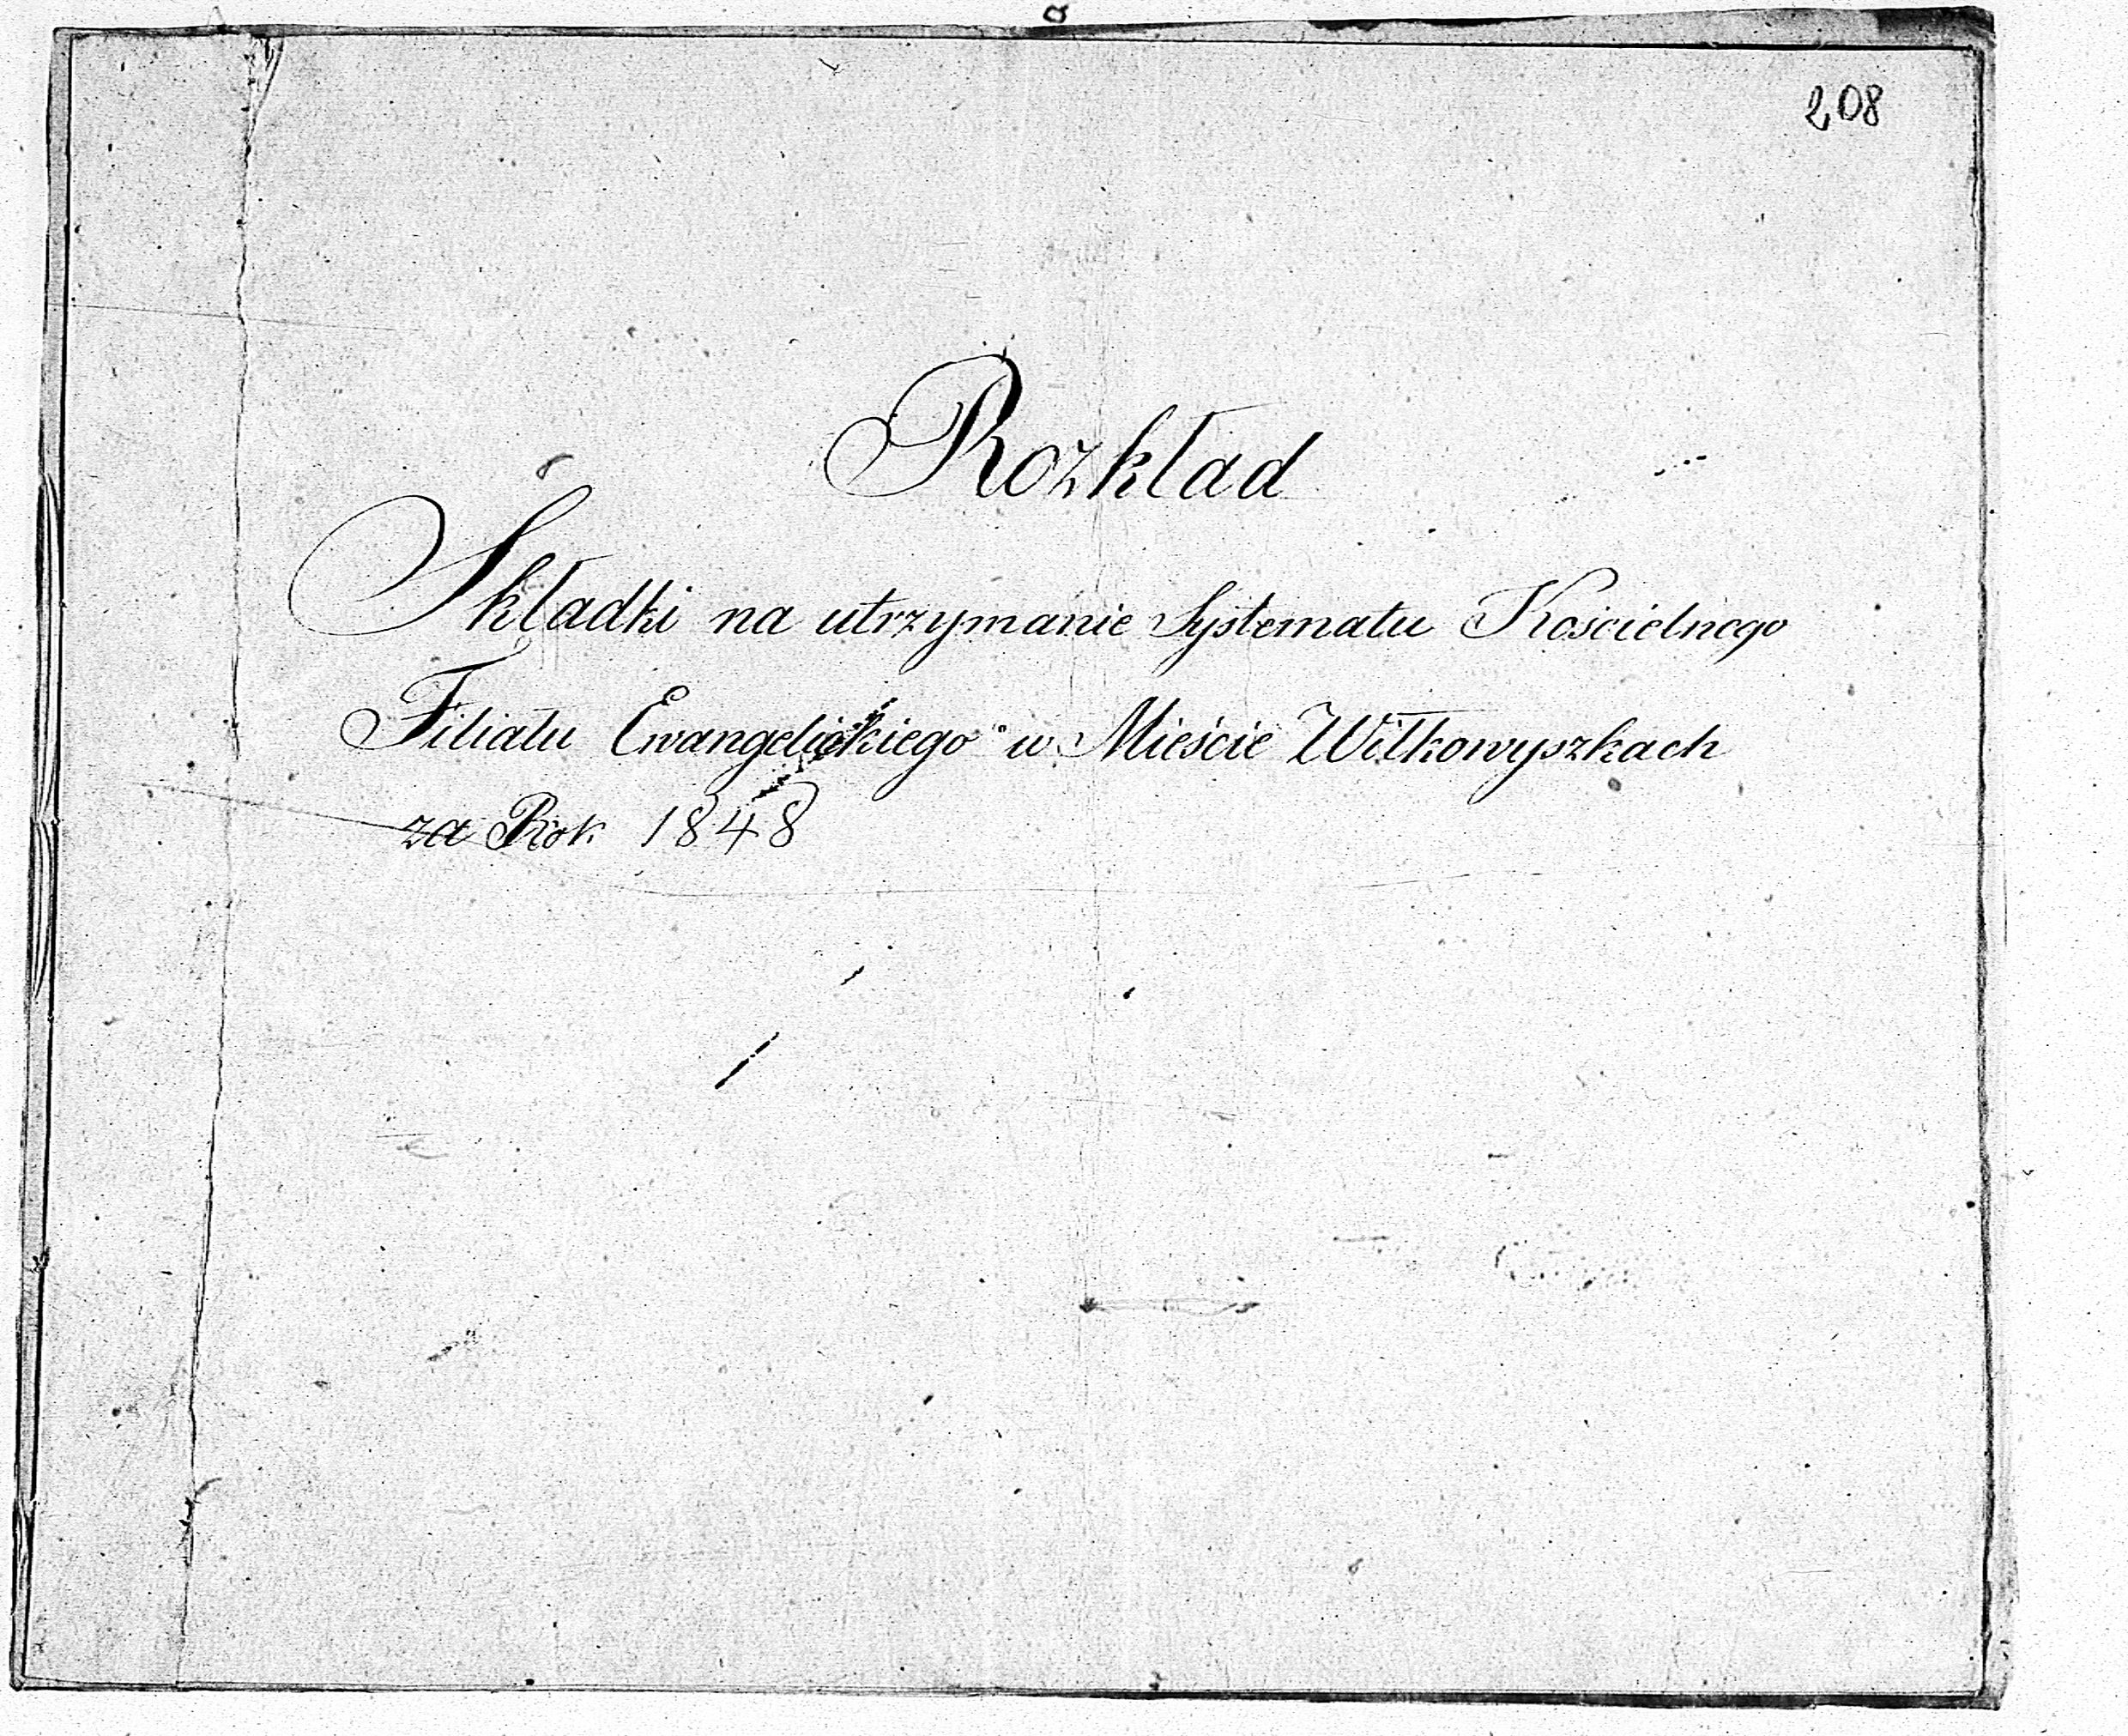 208
Rozkład
Składki na utrzymanie Systematu Kościelnego
Filiału Ewangelickiego w Mieście Wiłkowyszkach
za Rok 1848